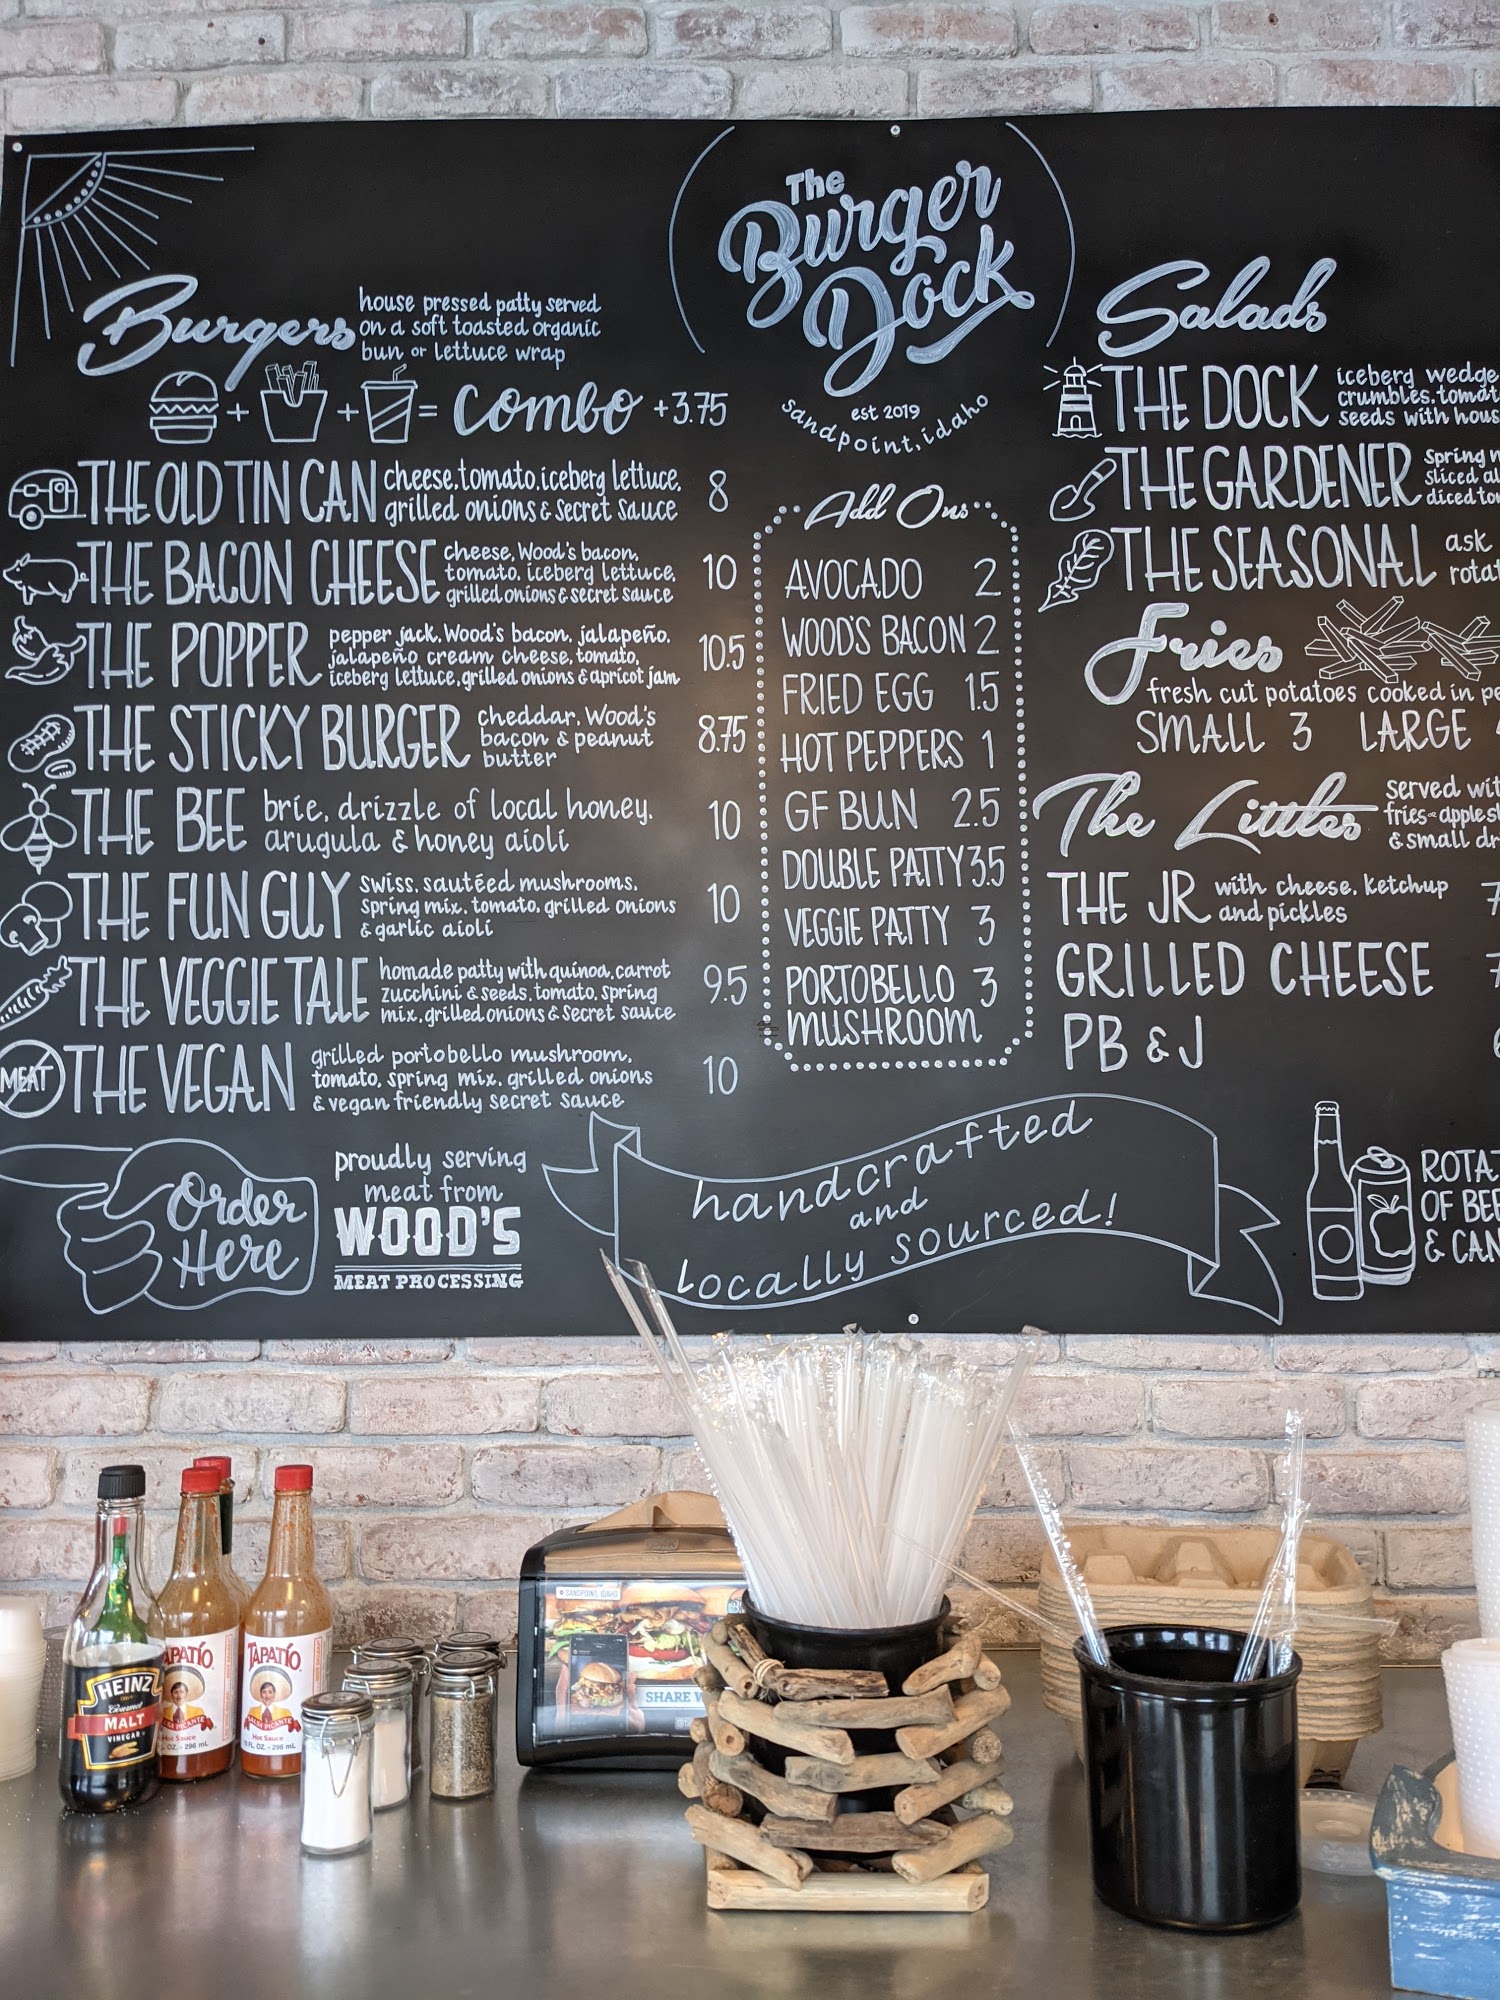 The
Burger
Dock
est 2019
sandpoint, idaho
Burgers
house pressed patty served
on a soft toasted organic
bun or lettuce wrap
+ + = combo +3.75
THE OLD TIN CAN cheese, tomato, iceberg lettuce, 8
grilled onions & secret sauce
THE BACON CHEESE cheese, Wood's bacon, 10
tomato, iceberg lettuce,
grilled onions & secret sauce
THE POPPER pepper jack, Wood's bacon, jalapeño, 10.5
jalapeño cream cheese, tomato,
iceberg lettuce, grilled onions & apricot jam
THE STICKY BURGER cheddar, Wood's 8.75
bacon & peanut
butter
THE BEE brie, drizzle of local honey, 10
arugula & honey aioli
THE FUN GUY swiss, sautéed mushrooms, 10
spring mix, tomato, grilled onions
& garlic aioli
THE VEGGIE TALE homade patty with quinoa, carrot 9.5
zucchini & seeds, tomato, spring
mix, grilled onions & secret sauce
MEAT
THE VEGAN grilled portobello mushroom, 10
tomato, spring mix, grilled onions
& vegan friendly secret sauce
Order
Here
proudly serving
meat from
WOOD'S
MEAT PROCESSING
Add Ons
AVOCADO 2
WOOD'S BACON 2
FRIED EGG 1.5
HOT PEPPERS 1
GF BUN 2.5
DOUBLE PATTY 3.5
VEGGIE PATTY 3
PORTOBELLO 3
MUSHROOM
handcrafted
and
locally sourced!
Salads
THE DOCK iceberg wedge
crumbles, tomat
seeds with hous
THE GARDENER spring
sliced
diced
THE SEASONAL ask
rotat
Fries
fresh cut potatoes cooked in
SMALL 3 LARGE
The Littles
served wit
fries
& small
THE JR with cheese, ketchup 7
and pickles
GRILLED CHEESE 7
PB & J
ROTA
OF BEE
& CAN
HEINZ
Gourmet
MALT
VINEGAR
TAPATÍO
SALSA PICANTE
Hot Sauce
OZ. - 296 mL
TAPATÍO
SALSA PICANTE
Hot Sauce
FL OZ. - 296 mL
SANDPOINT, IDAHO
SHARE